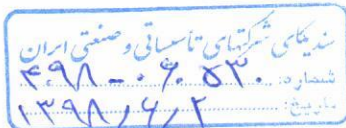 سندیکای شرکتهای تأسیساتی و صنعتی ایران
شماره: ۴۹۸-۰۶-۵۳۰
تاریخ: ۱۳۹۸/۶/۲